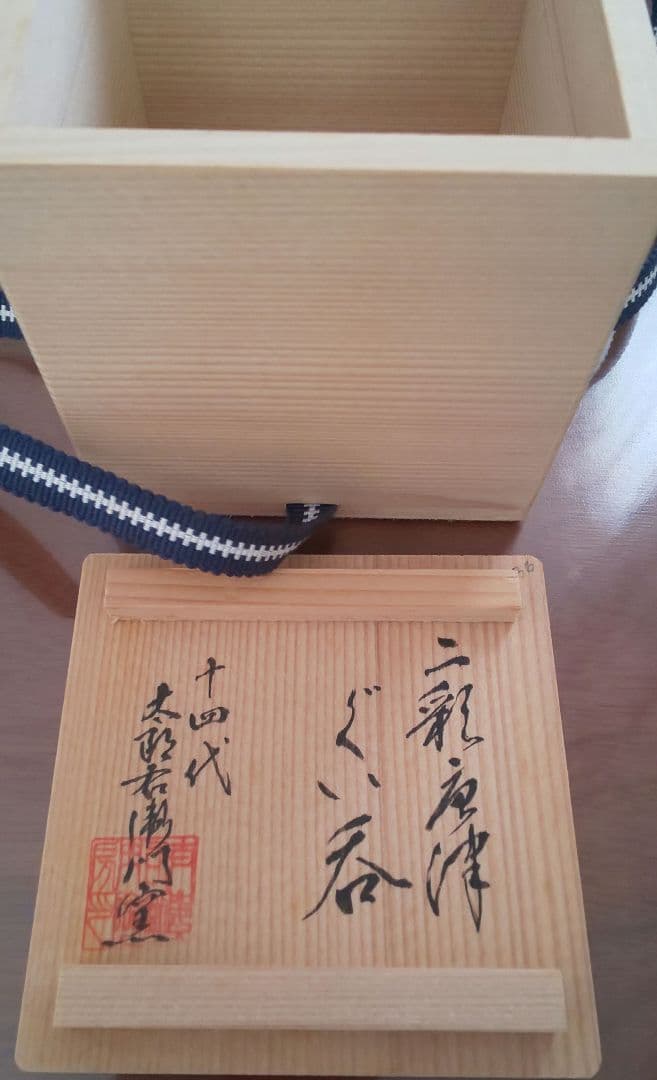 二彩唐津
ぐい呑
十四代
太郎右衛門窯